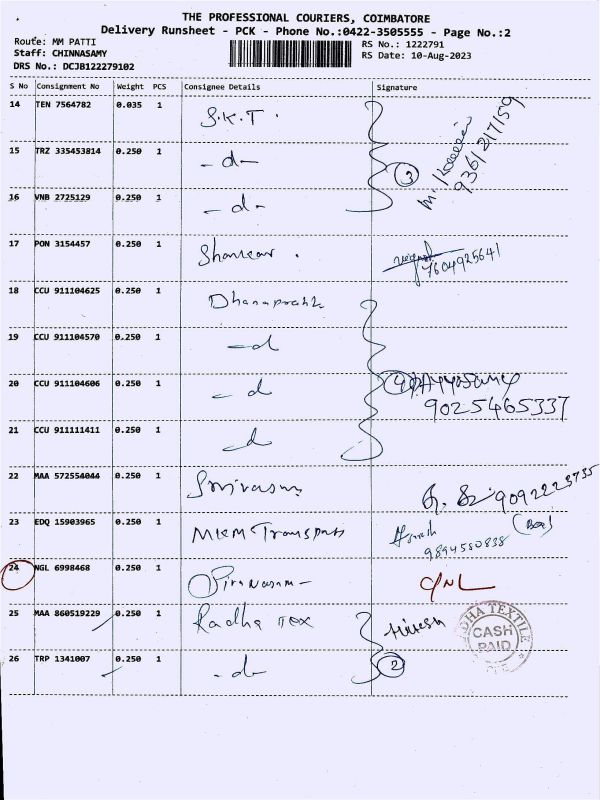 THE PROFESSIONAL COURIERS, COIMBATORE
Delivery Runsheet - PCK - Phone No.:0422-3505555 - Page No.:2
Route: MM PATTI
Staff: CHINNASAMY
DRS No.: DCJB122279102
RS No.: 1222791
RS Date: 10-Aug-2023
S No Consignment No Weight PCS Consignee Details Signature
14 TEN 7564782 0.035 1 S.K.T.
15 TRZ 335453814 0.250 1 -d-
3
9361217159
16 VNB 2725129 0.250 1 -d-
17 PON 3154457 0.250 1 Shankar.
7604925641
18 CCU 911104625 0.250 1
19 CCU 911104570 0.250 1 -d
20 CCU 911104606 0.250 1 -d
4
9025465337
21 CCU 911111411 0.250 1 -d
22 MAA 572554044 0.250 1 Srivasu
9092223735
23 EDQ 15903965 0.250 1 MKM Transport
9894580838
24 NGL 6998468 0.250 1
C/NL
25 MAA 860519229 0.250 1 Radha Tex
26 TRP 1341007 0.250 1 -d-
2
RADHA TEXTILE
CASH
PAID